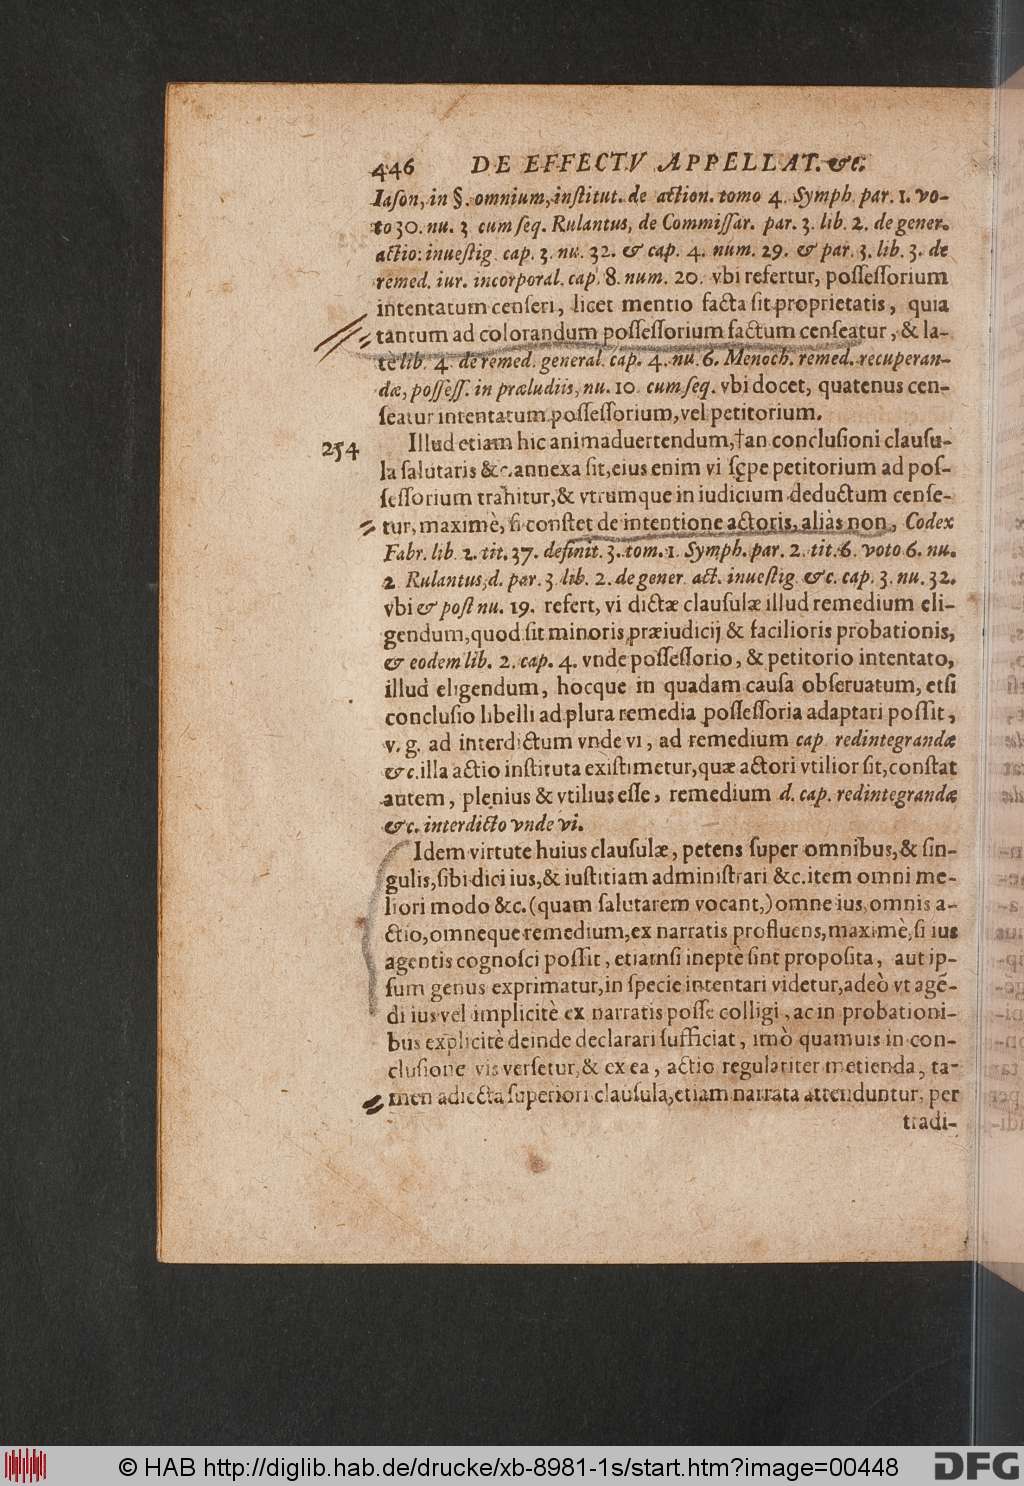 446 DE EFFECTV APPELLAT. &c.
Iaſon, in §. omnium, inſtitut. de action. tomo 4. Symph. par. 1. vo-
to 30. nu. 3 cum ſeq. Rulantus, de Commiſſar. par. 3. lib. 2. de gener.
actio: inueſtig. cap. 3. nu. 32. & cap. 4. num. 29. & par. 3. lib. 3. de
remed. iur. incorporal. cap. 8. num. 20. vbi refertur, poſſeſſorium
intentatum cenſeri, licet mentio facta ſit proprietatis, quia
tantum ad colorandum poſſeſſorium factum cenſeatur, & la-
tè lib. 4. de remed. general. cap. 4. nu. 6. Menoch. remed. recuperan-
dæ, poſſeſſ. in præludiis, nu. 10. cum ſeq. vbi docet, quatenus cen-
ſeatur intentatum poſſeſſorium, vel petitorium.
254 Illud etiam hic animaduertendum, † an concluſioni clauſu-
la ſalutaris &c. annexa ſit, eius enim vi ſępe petitorium ad poſ-
ſeſſorium trahitur, & vtrumque in iudicium deductum cenſe-
tur, maximè, ſi conſtet de intentione actoris, aliàs non, Codex
Fabr. lib. 2. tit. 37. definit. 3. tom. 1. Symph. par. 2. tit. 6. voto 6. nu.
2 Rulantus, d. par. 3. lib. 2. de gener. act. inueſtig. &c. cap. 3. nu. 32.
vbi & poſt nu. 19. refert, vi dictæ clauſulæ illud remedium eli-
gendum, quod ſit minoris præiudicij & facilioris probationis,
& eodem lib. 2. cap. 4. vnde poſſeſſorio, & petitorio intentato,
illud eligendum, hocque in quadam cauſa obſeruatum, etſi
concluſio libelli ad plura remedia poſſeſſoria adaptari poſſit,
v. g. ad interdictum vnde vi, ad remedium cap. redintegrandæ
&c. illa actio inſtituta exiſtimetur, quæ actori vtilior ſit, conſtat
autem, plenius & vtilius eſſe, remedium d. cap. redintegrandæ
&c. interdicto vnde vi.
Idem virtute huius clauſulæ, petens ſuper omnibus, & ſin-
gulis, ſibi dici ius, & iuſtitiam adminiſtrari &c. item omni me-
liori modo &c. (quam ſalutarem vocant,) omne ius, omnis a-
ctio, omneque remedium, ex narratis profluens, maximè, ſi ius
agentis cognoſci poſſit, etiamſi ineptè ſint propoſita, aut ip-
ſum genus exprimatur, in ſpecie intentari videtur, adeò vt agē-
di ius vel implicitè ex narratis poſſe colligi, ac in probationi-
bus explicitè deinde declarari ſufficiat, imò quamuis in con-
cluſione vis verſetur, & ex ea, actio regulariter metienda, ta-
men adiecta ſuperiori clauſula, etiam narrata attenduntur, per
tradi-
© HAB http://diglib.hab.de/drucke/xb-8981-1s/start.htm?image=00448
DFG